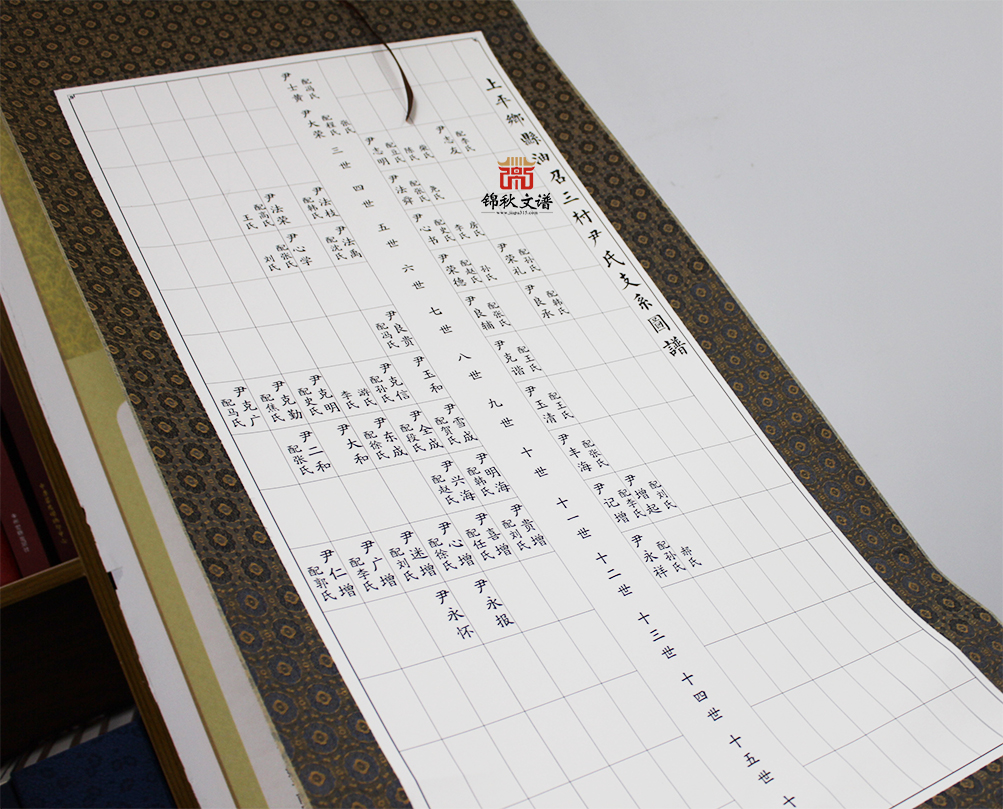 上平鄉縣油召三村尹氏支系圖譜
锦秋文谱
www.jiapu315.com
尹士黄
配冯氏
尹大荣
配程氏
张氏
三世
尹志明
配豆氏
陈氏
柴氏
尹志友
配李氏
四世
尹法舜
配张氏
尹法枝
配韩氏
尹法荣
配高氏
王氏
五世
尹心书
配史氏
李氏
房氏
尹法禹
配沈氏
尹心学
配张氏
刘氏
六世
尹荣德
配赵氏
孙氏
尹荣礼
配孙氏
七世
尹良辅
配张氏
尹良承
配韩氏
尹良贵
配冯氏
八世
尹克谐
配王氏
尹玉和
尹克信
配孙氏
游氏
李氏
尹克明
配史氏
尹克勤
配焦氏
尹克广
配马氏
九世
尹玉清
配王氏
尹雪成
配贺氏
尹全成
配段氏
尹东成
配徐氏
尹大和
尹二和
配张氏
十世
尹丰海
配张氏
尹明海
配韩氏
尹兴海
配赵氏
十一世
尹记增
尹增起
配李氏
配刘氏
尹贵增
配刘氏
尹喜增
配任氏
尹心增
配徐氏
尹述增
配刘氏
尹广增
配李氏
尹仁增
配郭氏
十二世
尹永祥
配孙氏
郝氏
尹永报
尹永怀
十三世
十四世
十五世
十